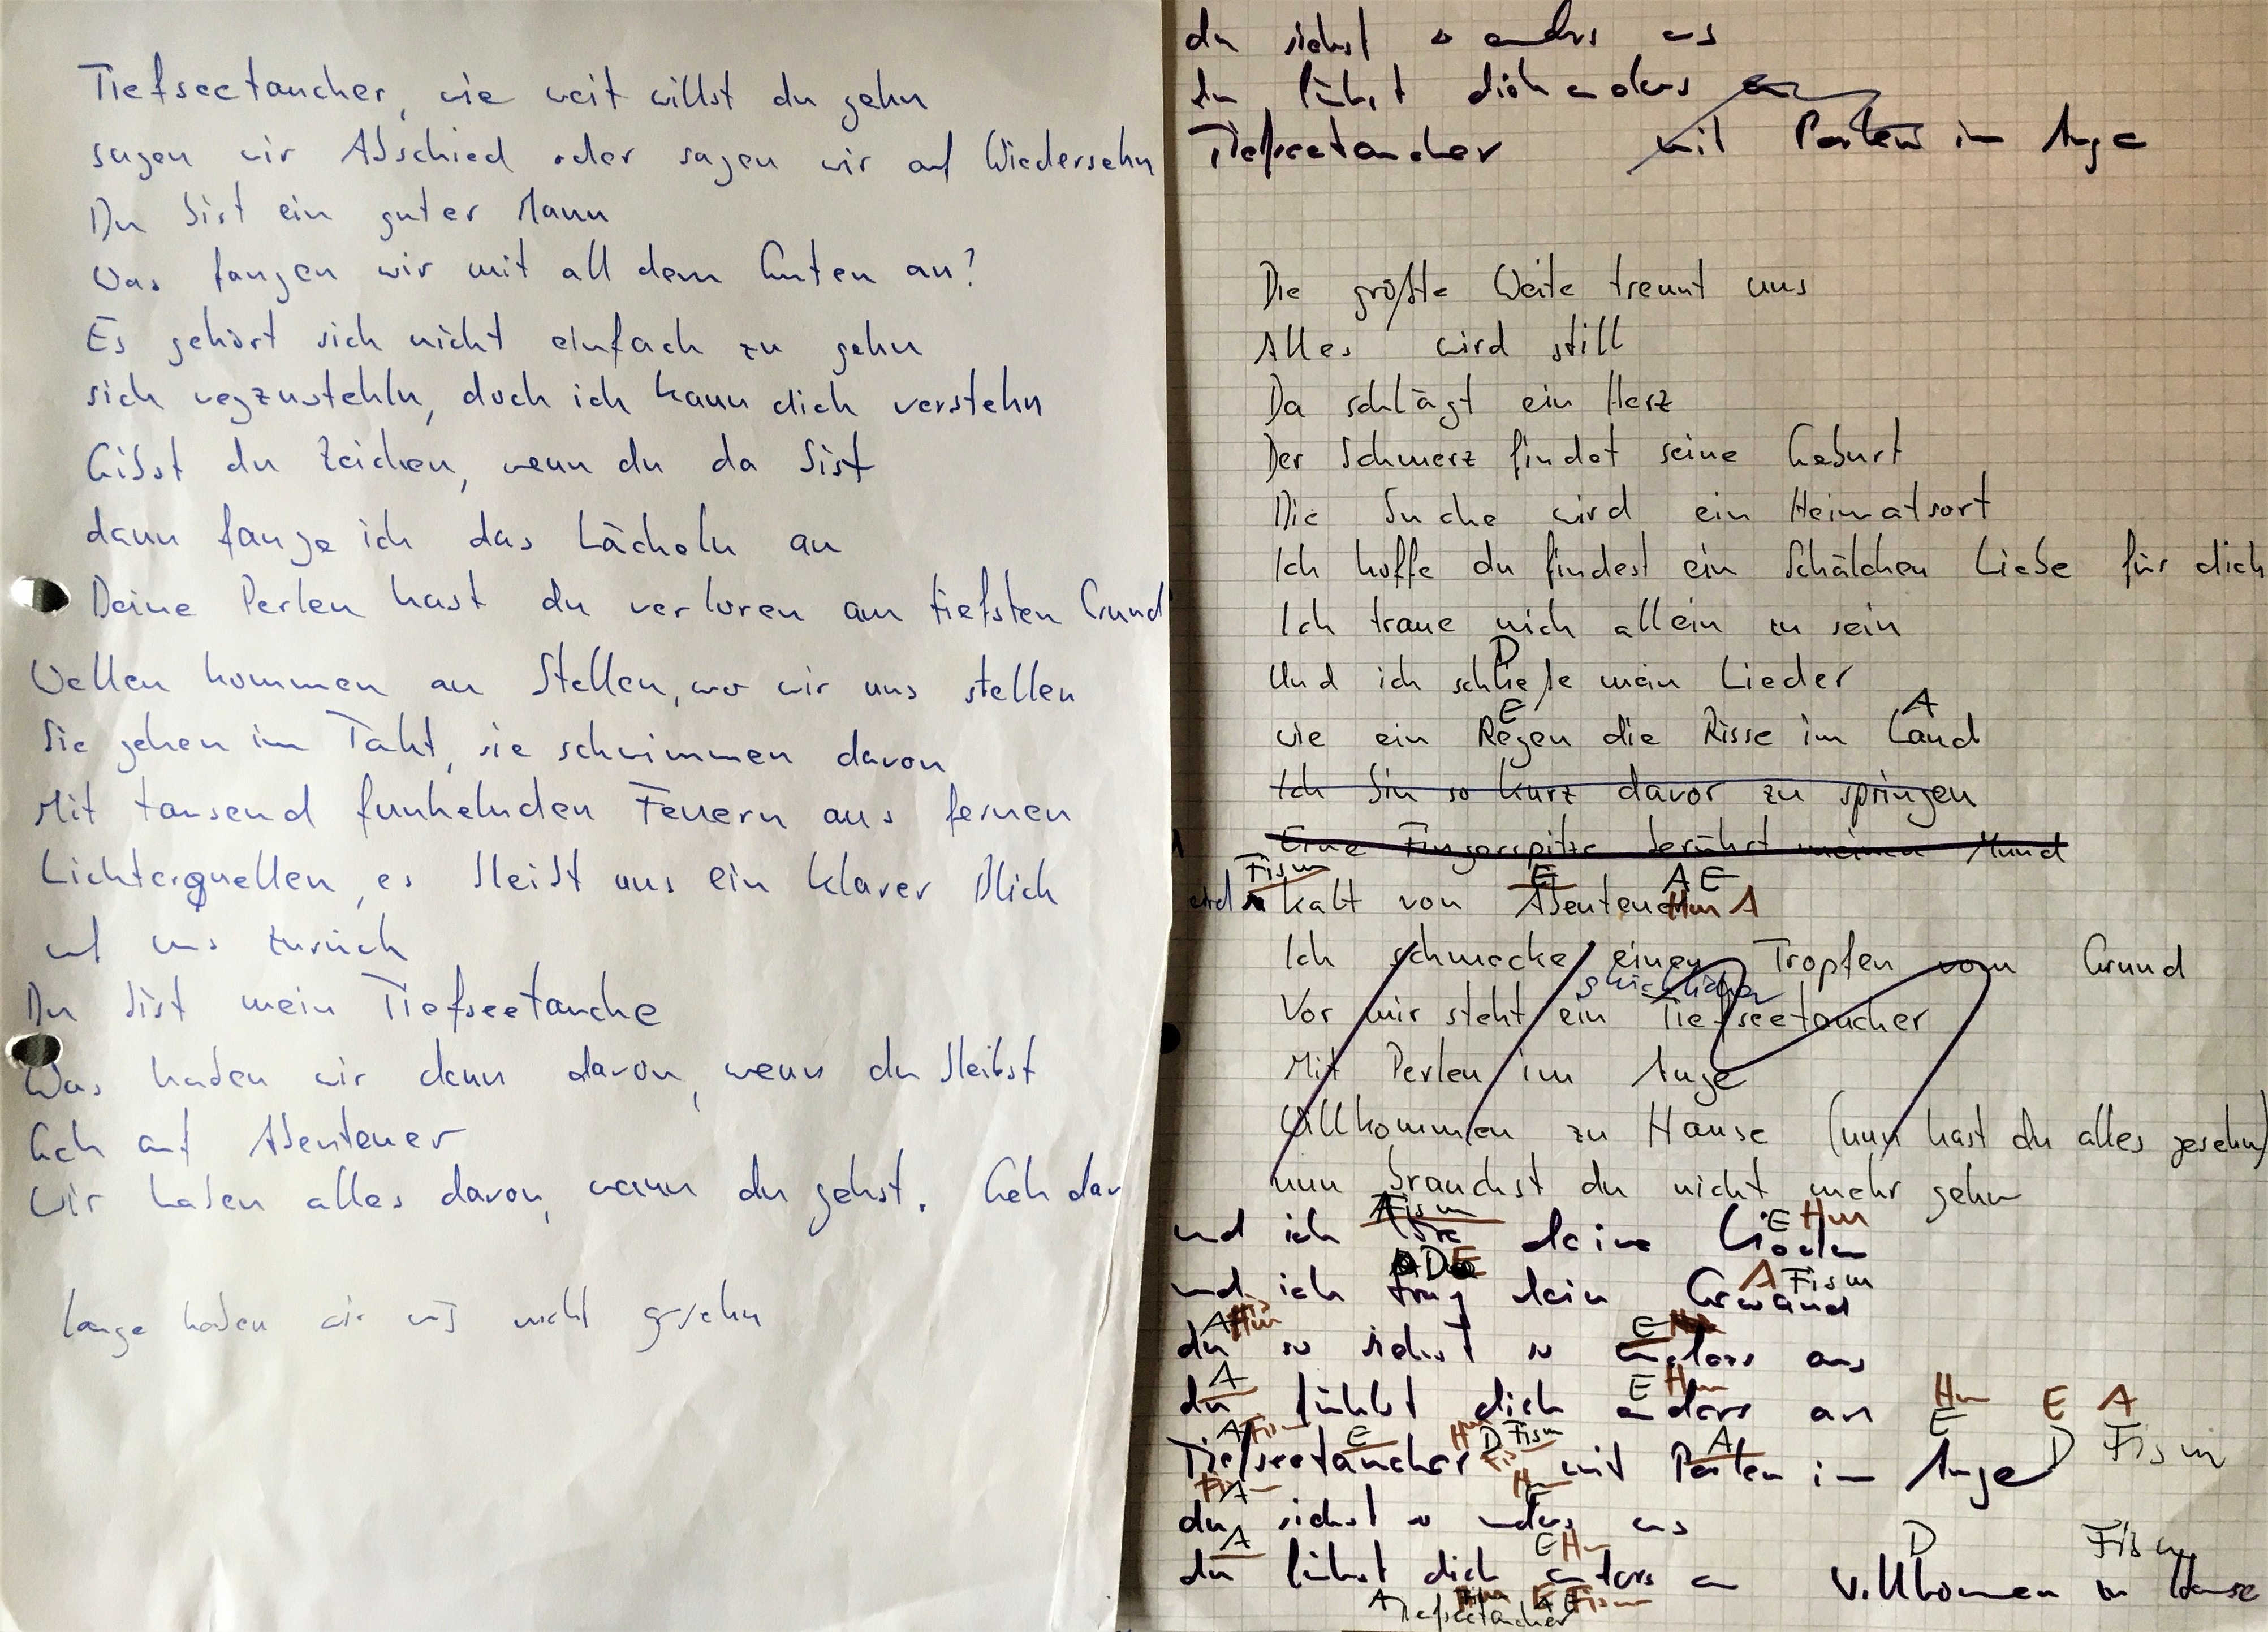 Tiefseetaucher, wie weit willst du gehn
sagen wir Abschied oder sagen wir auf Wiedersehn
Du bist ein guter Mann
Was fangen wir mit all dem Guten an?
Es gehört sich nicht einfach zu gehn
sich wegzustehln, doch ich kann dich verstehn
Gibst du Zeichen, wenn du da bist
dann fange ich das Lächeln an
Deine Perlen hast du verloren am tiefsten Grund
Wellen kommen an Stellen, wo wir uns stellen
Sie gehen im Takt, sie schwimmen davon
Mit tausend funkelnden Feuern aus fernen
Lichterquellen, es bleibt uns ein klarer Blick
auf uns zurück
Du bist mein Tiefseetauche
Was haben wir denn davon, wenn du bleibst
Geh auf Abenteuer
Wir haben alles davon, wenn du gehst. Geh dav
lange haben wir uns nicht gesehn
du siehst so anders aus
du fühlst dich anders an
Tiefseetaucher mit Perlen im Auge
Die größte Weite trennt uns
Alles wird still
Da schlägt ein Herz
Der Schmerz findet seine Geburt
Die Suche wird ein Heimatsort
Ich hoffe du findest ein Schälchen Liebe für dich
Ich traue mich allein zu sein
D
Und ich schließe mein Lieder
E A
wie ein Regen die Risse im Land
Ich bin so kurz davor zu springen
Eine Fingerspitze berührt meinen Mund
Fism E A E
wird kalt von Abenteuer Hm A
Ich schmecke einen Tropfen vom Grund
glücklicher
Vor mir steht ein Tiefseetaucher
Mit Perlen im Auge
Willkommen zu Hause (nun hast du alles gesehn)
nun brauchst du nicht mehr gehn
Fism E Hm
und ich deine Lieder
D E A Fism
und ich trug dein Gewand
A Hm E
du so siehst so anders aus
A E Hm Hm E A
du fühlst dich anders an E
A Fism E Hm D Fism A D Fism
Tiefseetaucher mit Perlen im Auge
A Hm E
du siehst so anders aus
A E Hm D Fism
du fühlst dich anders an Willkommen zu Hause
A E Fism
Tiefseetaucher